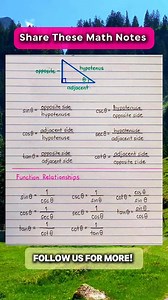 Share These Math Notes
opposite
hypotenuse
θ
adjacent
sinθ = opposite side / hypotenuse cscθ = hypotenuse / opposite side
cosθ = adjacent side / hypotenuse secθ = hypotenuse / adjacent side
tanθ = opposite side / adjacent side cotθ = adjacent side / opposite side
Function Relationships
sinθ = 1 cscθ = 1 / sinθ cotθ =
cosθ = 1 secθ = 1 / cosθ tanθ =
tanθ = 1 / cotθ cotθ = 1 / tanθ
FOLLOW US FOR MORE!